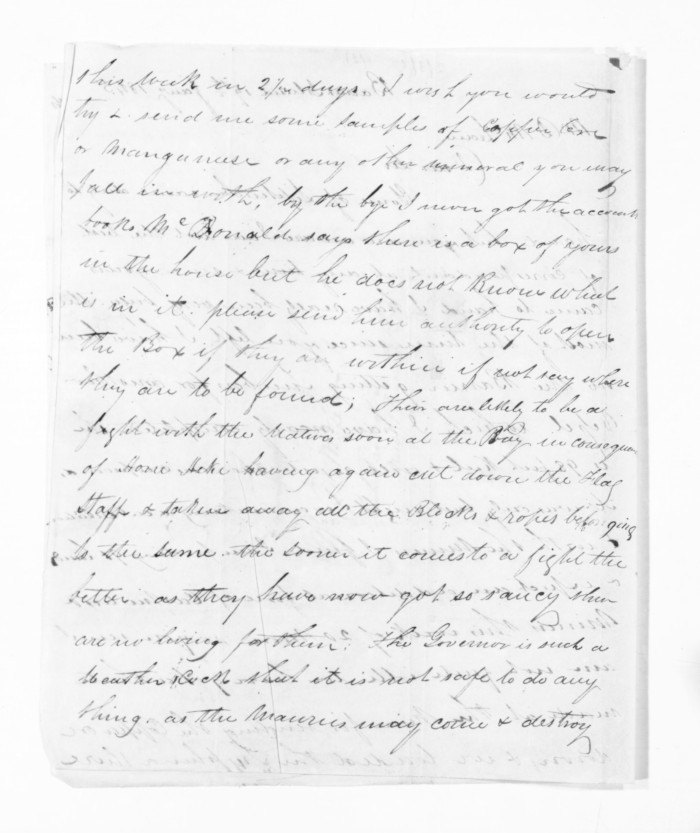 this week in 2½ days. I wish you would
try & send me some samples of Copper Ore
or Manganese or any other mineral you may
fall in with, by the bye I never got the account
books Mc Donald says there is a box of yours
in the house but he does not Know what
is in it. please send him authority to open
the Box if they are within if not say where
they are to be found; Thier are likely to be a
fight with the Natives soon at the Bay in consequen
of Honi Heke having again cut down the Flag
Staff & taken away all the Blocks & ropes
is the same the sooner it comes to a fight the
better as they have now got so saucy thier
are no living for them. The Governor is such a
Weather Cock that it is not safe to do any
thing. as the Mauries may come & destroy